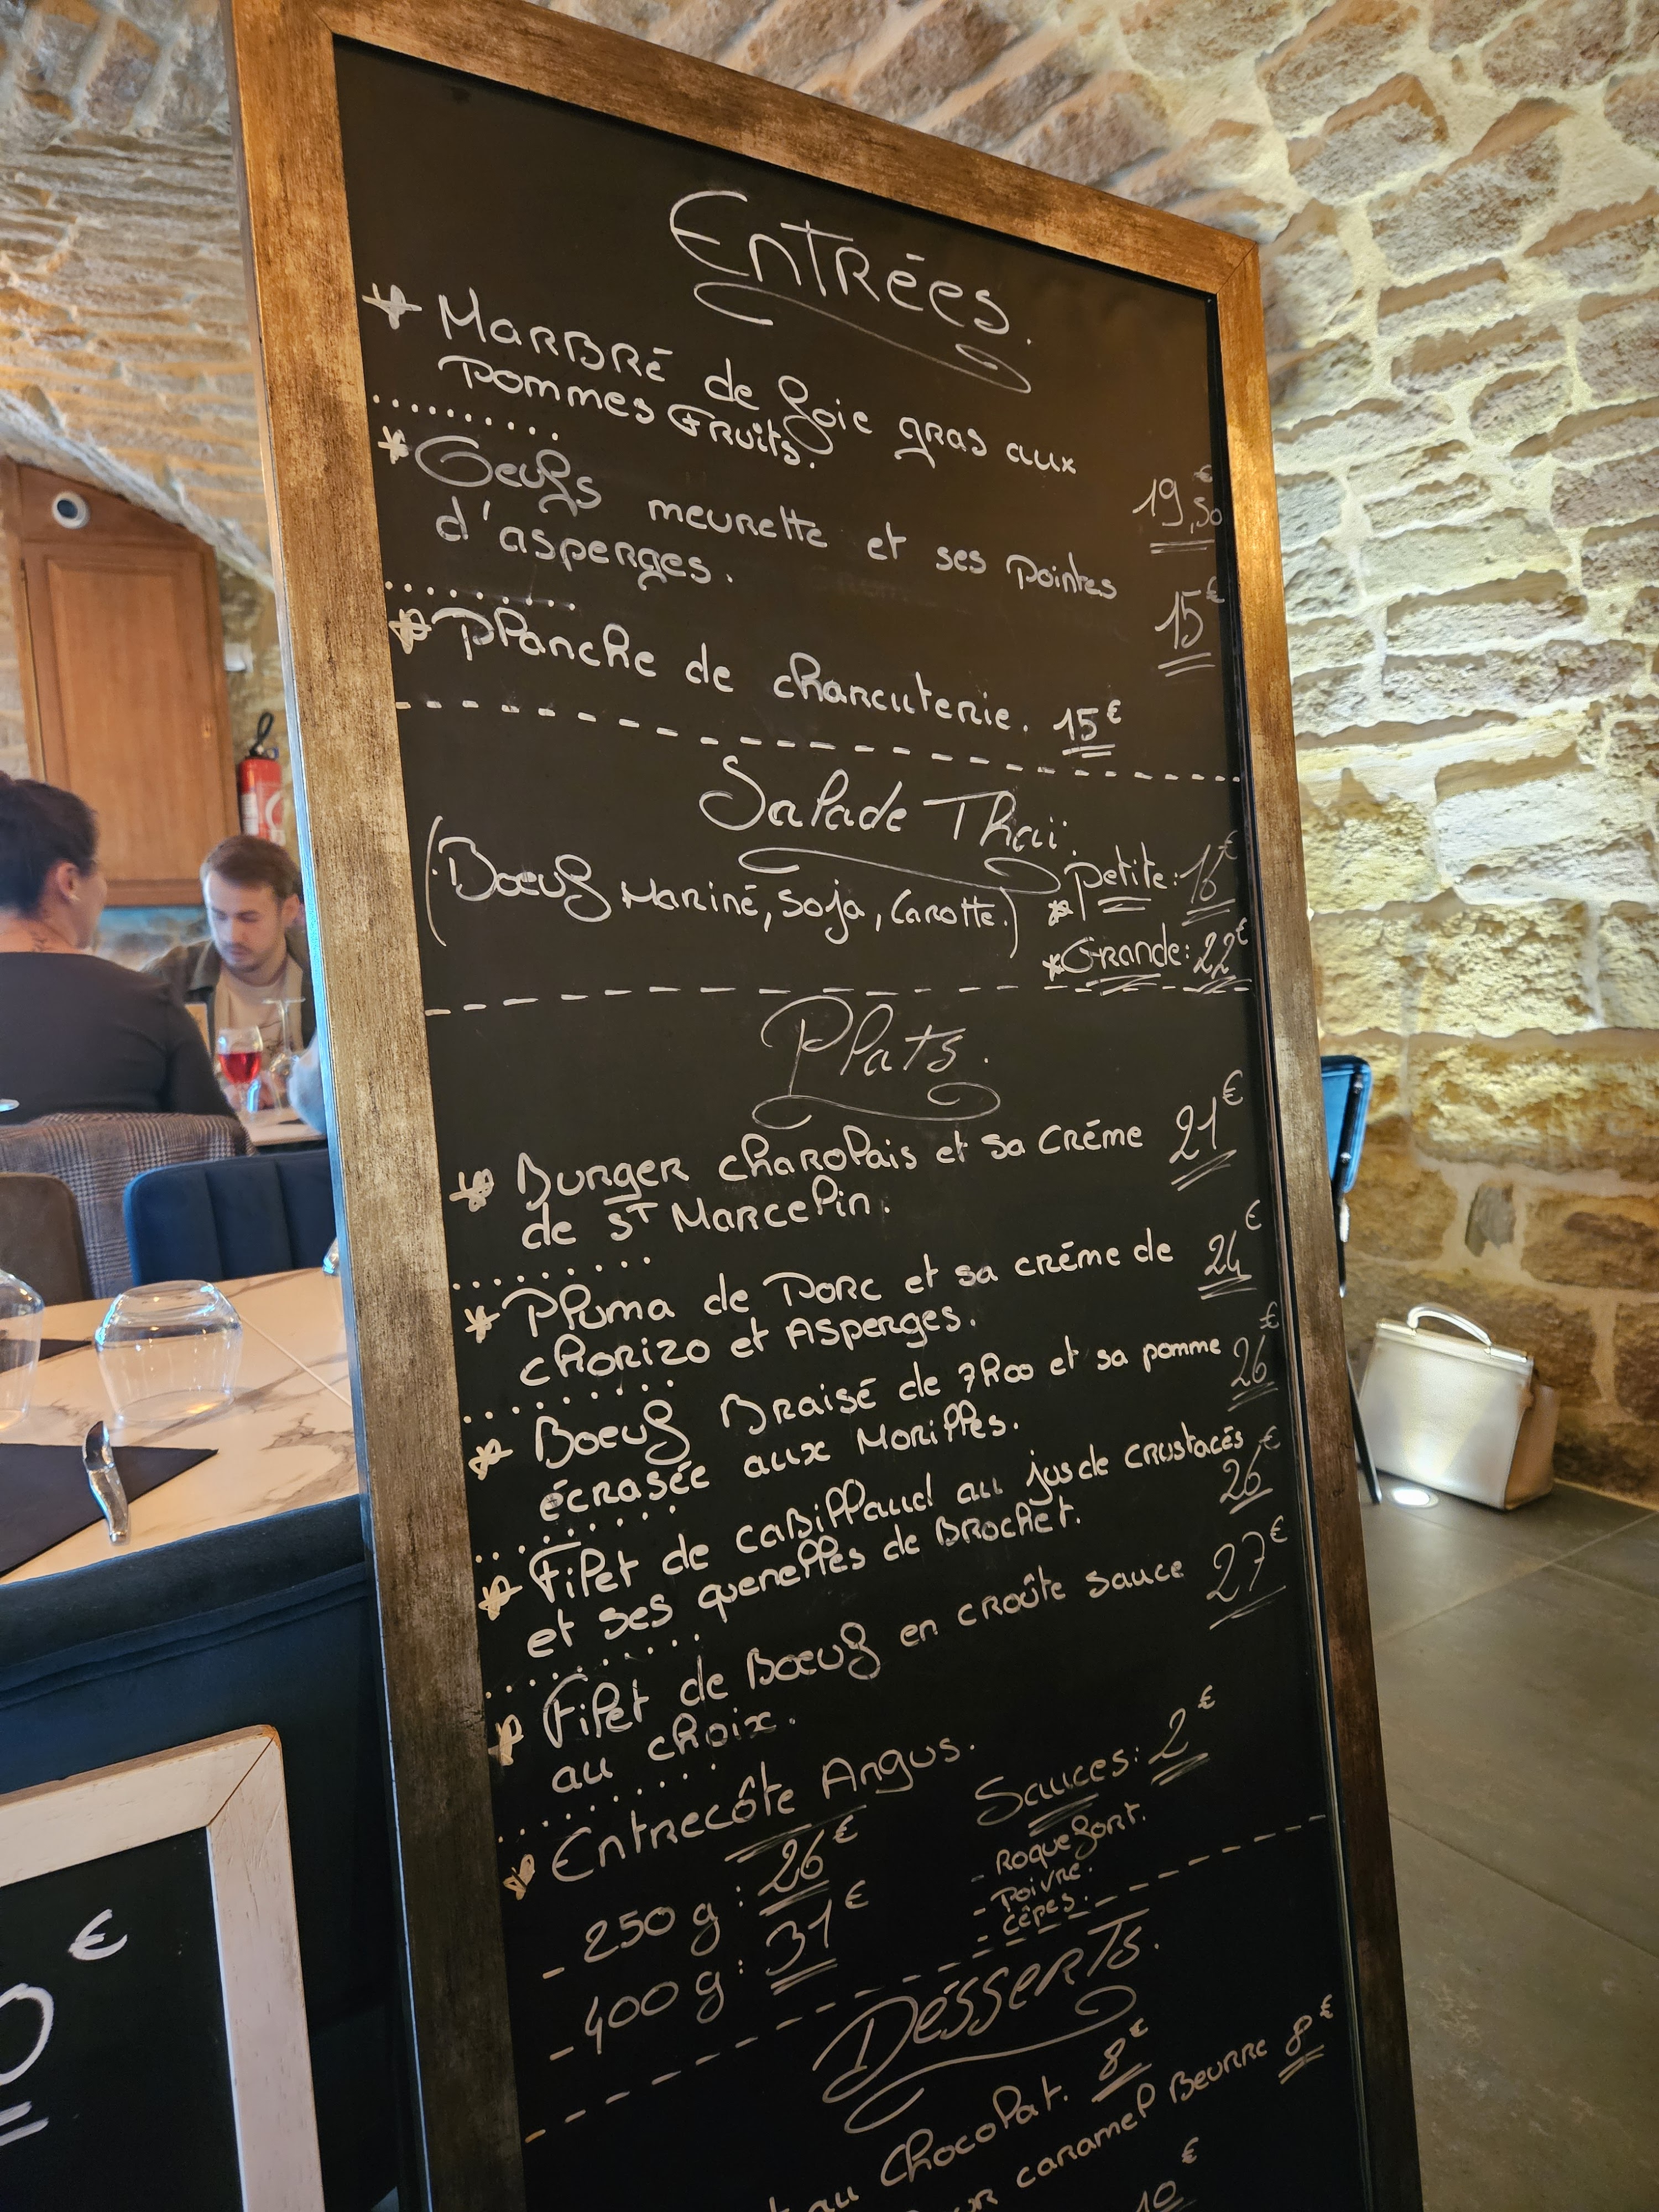 Entrées.
* Marbré de foie gras aux
Pommes Fruits. 19,50€
.........
* Oeufs meurette et ses pointes
d'asperges. 15€
.........
* Planche de charcuterie. 15€
Salade Thaï.
(Boeuf Mariné, Soja, Carotte.)
* Petite: 16€
* Grande: 22€
Plats.
* Burger charolais et sa Créme 21€
de ST Marcelin.
.........
* Pluma de Porc et sa créme de 24€
chorizo et Asperges.
.......
* Boeuf Braisé de 7h00 et sa pomme 26€
écrasée aux Morilles.
.......
* Filet de cabillaud au jus de crustacés 26€
et ses quenelles de Brochet.
.......
* Filet de Boeuf en croûte sauce 27€
au choix.
.......
* Entrecôte Angus.
- 250 g: 26€
- 400 g: 31€
Sauces: 2€
- Roquefort.
- Poivre.
- Cêpes.
Desserts.
au Chocolat. 8€
caramel Beurre 8€
10€
0€